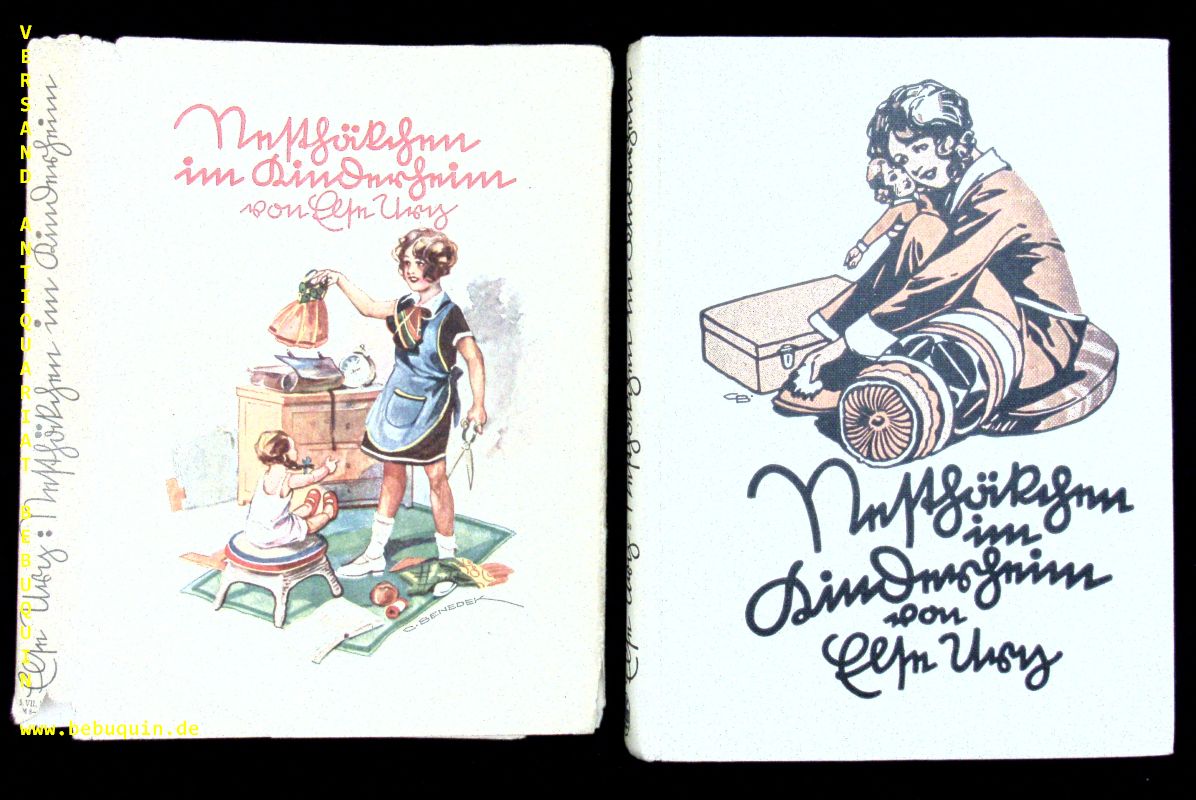 VERSAND ANTIQUARIAT BEBUQUIN
Else Ury: Nesthäkchen im Kinderheim
Nesthäkchen
im Kinderheim
von Else Ury
C. BENEDEK
www.bebuquin.de
Else Ury: Nesthäkchen im Kinderheim
CB.
Nesthäkchen
im
Kinderheim
von
Else Ury